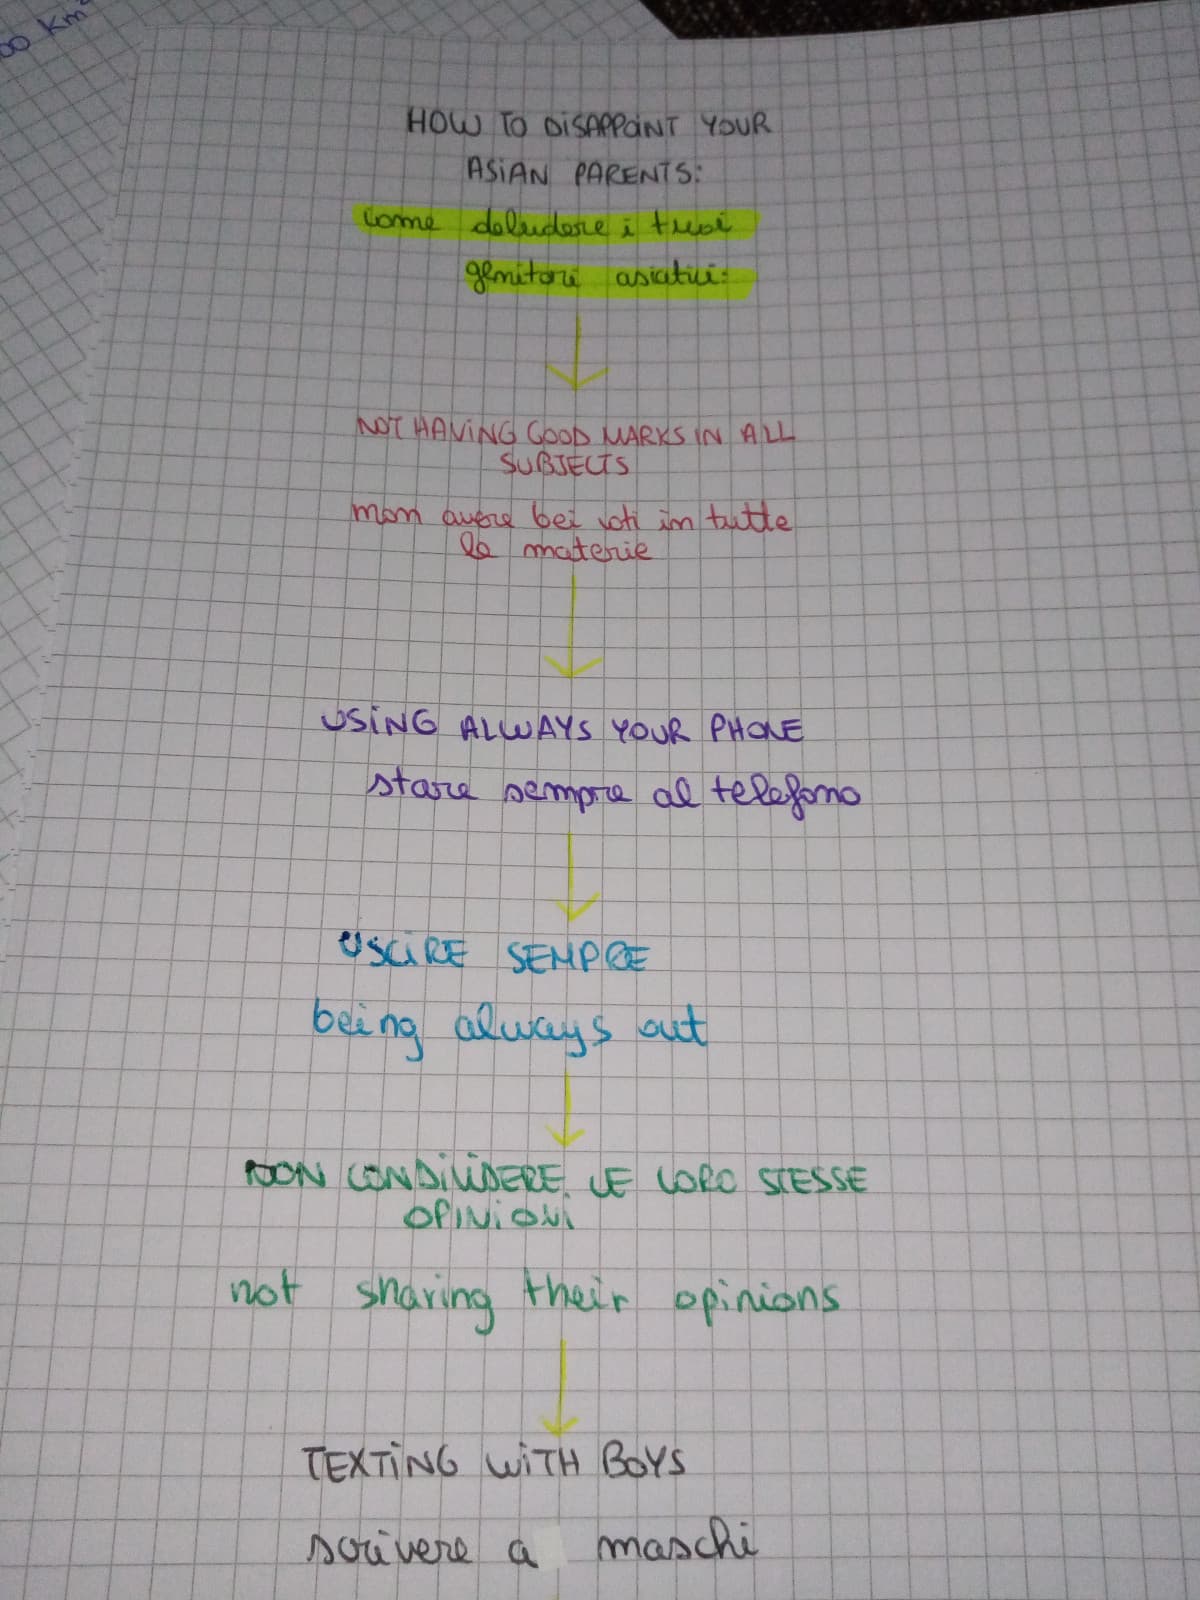 00 km²
HOW TO DISAPPOINT YOUR
ASIAN PARENTS:
come deludere i tuoi
genitori asiatici:
NOT HAVING GOOD MARKS IN ALL
SUBJECTS
non avere bei voti in tutte
le materie
USING ALWAYS YOUR PHONE
stare sempre al telefono
USCIRE SEMPRE
being always out
NON CONDIVIDERE LE LORO STESSE
OPINIONI
not sharing their opinions
TEXTING WITH BOYS
scrivere a maschi